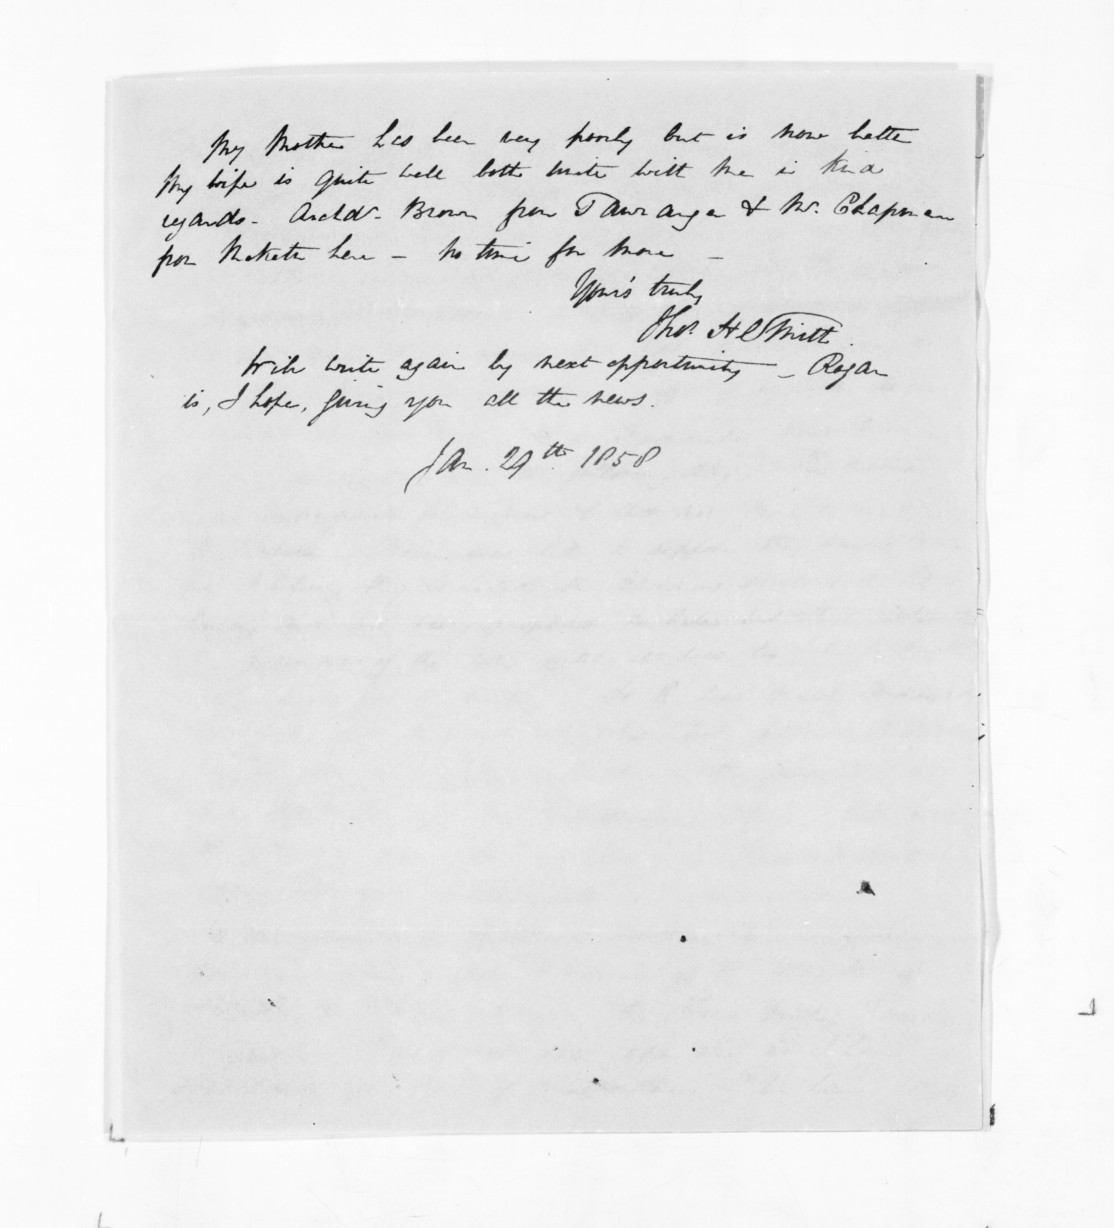 My Mother has been very poorly but is now better
My wife is quite well both unite with me in kind
regards - Archdn. Brown from Tauranga & Mr. Chapman
from Maketu here - no time for more -
Your's truly
Thos. H Smith.
Will write again by next opportunity - Rogan
is, I hope, giving you all the news.
Jan. 29th. 1858